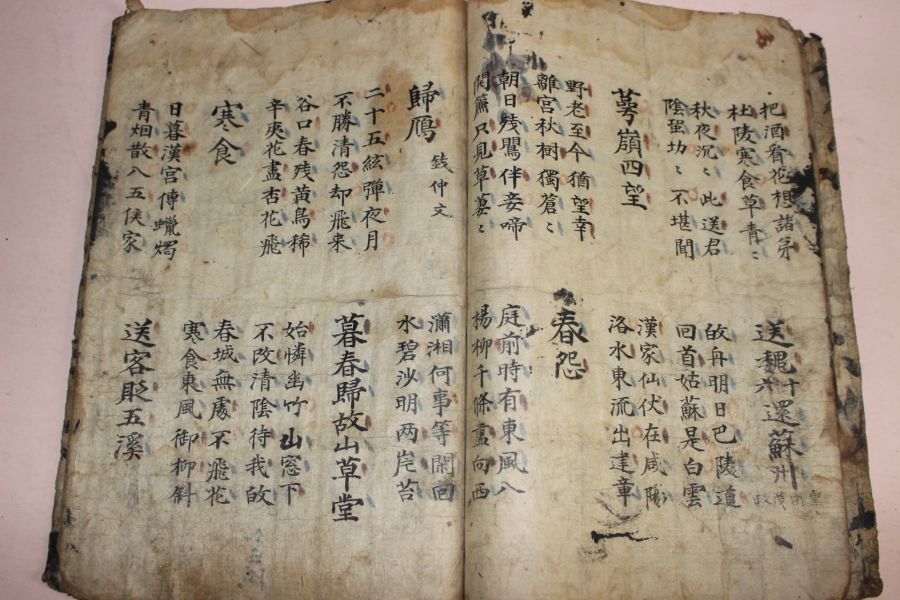 把酒看花想諸弟
杜陵寒食草青〻
送魏十六還蘇州
秋夜沉〻此送君
陰蛩切〻不堪聞
故舟明日巴陵道
回首姑蘇是白雲
萼嶺四望
漢家仙伏在咸陽
洛水東流出建章
野老至今猶望幸
離宮秋樹獨蒼〻
春怨
朝日残鶯伴妾啼
開簾只見草萋〻
庭前時有東風入
楊柳千條盡向西
歸鴈 錢仲文
瀟湘何事等閑回
水碧沙明两岸苔
二十五絃彈夜月
不勝清怨却飛来
暮春歸故山草堂
谷口春残黄鳥稀
辛夷花盡杏花飛
始憐幽竹山窓下
不改清陰待我故
寒食
春城無處不飛花
寒食東風御柳斜
日暮漢宮傳蠟燭
青烟散入五侯家
送客貶五溪